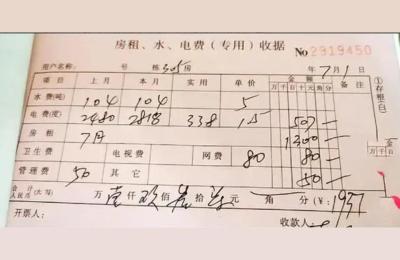 房租、水、电费（专用）收据 No 2919450
用户名称： 号 栋 305 房 年 7 月 1 日
项目 上月 本月 实用 单价 金额 备注 ①存根(白)
万 千 百 十 元 角 分
水费(吨) 104 104 5
电费(度) 2480 2818 338 1.5 507 —
房租 7月 1300 —
卫生费 电视费 网费 80 80 —
管理费 50 其它 50 —
合计(大写)人民币 万 壹 仟 玖 佰 叁 拾 柒 元 角 分 (￥: 1937
开票人： 收款人